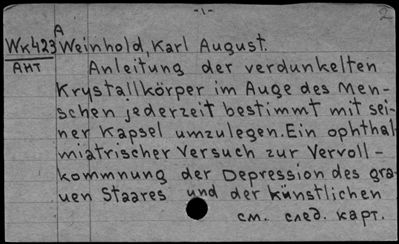 -1-
2
A
Wk423 Weinhold, Karl August.
Ант Anleitung der verdunkelten
Krystallkörper im Auge des Men-
schen jederzeit bestimmt mit sei-
ner Kapsel umzulegen. Ein ophthal
miatrischer Versuch zur Vervoll-
kommnung der Depression des gra-
uen Staares und der künstlichen
см. след. карт.